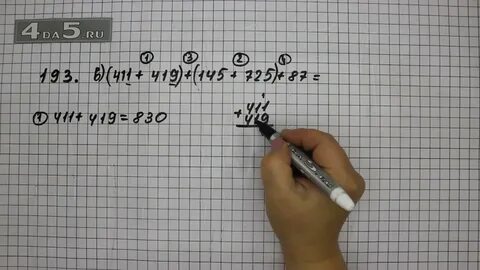 4 DA 5.RU
① ③ ② ④
193. в) (411 + 419) + (145 + 725) + 87 =
① 411 + 419 = 830
+ 411
419